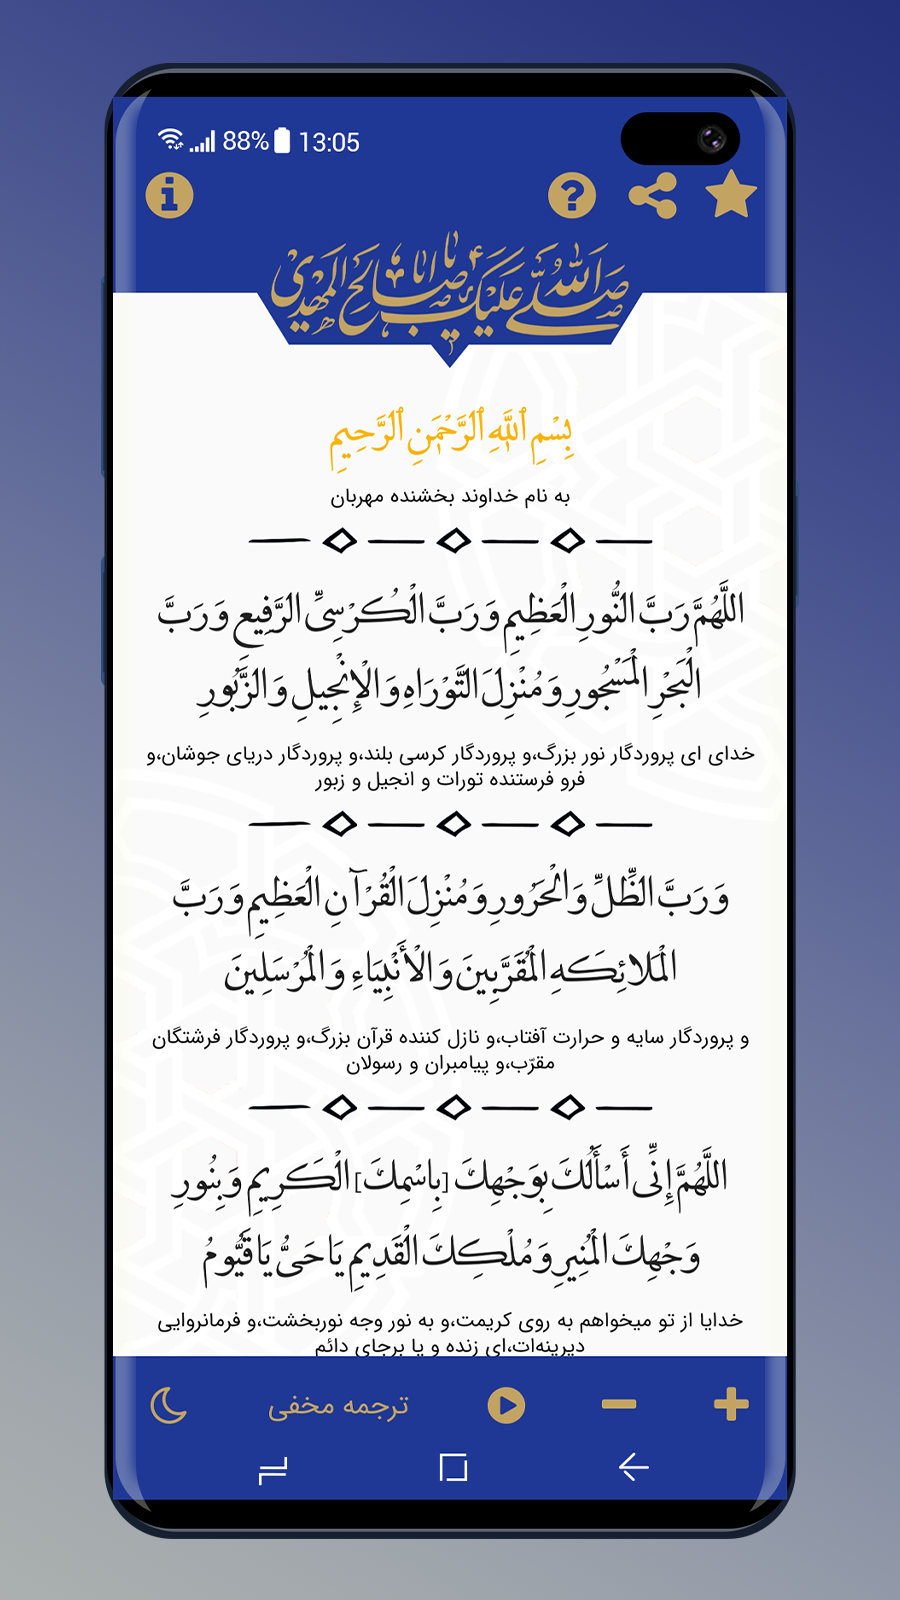 88% 13:05
صلی الله علیک یا اباصالح المهدی
بِسْمِ ٱللَّهِ ٱلرَّحْمَٰنِ ٱلرَّحِيمِ
به نام خداوند بخشنده مهربان
اللَّهُمَّ رَبَّ النُّورِ الْعَظِيمِ وَ رَبَّ الْكُرْسِيِّ الرَّفِيعِ وَ رَبَّ
الْبَحْرِ الْمَسْجُورِ وَ مُنْزِلَ التَّوْرَاهِ وَ الْإِنْجِيلِ وَ الزَّبُورِ
خدای ای پروردگار نور بزرگ،و پروردگار کرسی بلند،و پروردگار دریای جوشان،و
فرو فرستنده تورات و انجیل و زبور
وَ رَبَّ الظِّلِّ وَ الْحَرُورِ وَ مُنْزِلَ الْقُرْآنِ الْعَظِيمِ وَ رَبَّ
الْمَلائِكَهِ الْمُقَرَّبِينَ وَ الْأَنْبِيَاءِ وَ الْمُرْسَلِينَ
و پروردگار سایه و حرارت آفتاب،و نازل کننده قرآن بزرگ،و پروردگار فرشتگان
مقرّب،و پیامبران و رسولان
اللَّهُمَّ إِنِّي أَسْأَلُكَ بِوَجْهِكَ [بِاسْمِكَ] الْكَرِيمِ وَ بِنُورِ
وَجْهِكَ الْمُنِيرِ وَ مُلْكِكَ الْقَدِيمِ يَا حَيُّ يَا قَيُّومُ
خدایا از تو میخواهم به روی کریمت،و به نور وجه نوربخشت،و فرمانروایی
دیرینه‌ات،ای زنده و پا برجای دائم
ترجمه مخفی